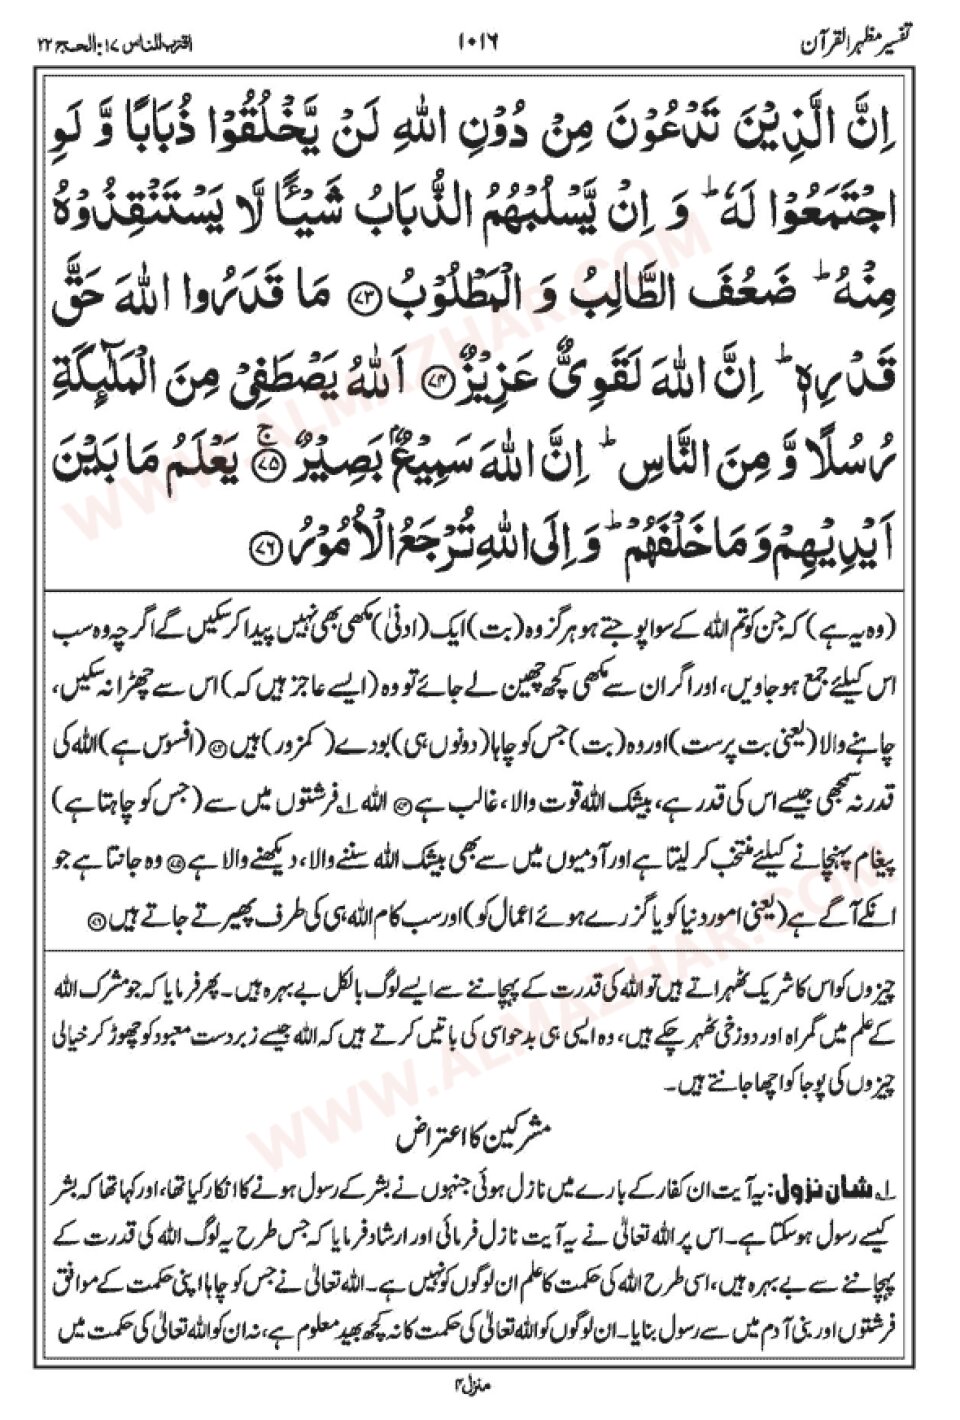 تفسیر مظہر القرآن
۱۰۱۶
اقترب للناس ۱۷: الحج ۲۲
اِنَّ الَّذِيْنَ تَدْعُوْنَ مِنْ دُوْنِ اللّٰهِ لَنْ يَّخْلُقُوْا ذُبَابًا وَّ لَوِ
اجْتَمَعُوْا لَهٗ ؕ وَ اِنْ يَّسْلُبْهُمُ الذُّبَابُ شَيْـًٔا لَّا يَسْتَنْقِذُوْهُ
مِنْهُ ؕ ضَعُفَ الطَّالِبُ وَ الْمَطْلُوْبُ ﴿۷۳﴾ مَا قَدَرُوا اللّٰهَ حَقَّ
قَدْرِهٖ ؕ اِنَّ اللّٰهَ لَقَوِىٌّ عَزِيْزٌ ﴿۷۴﴾ اَللّٰهُ يَصْطَفِىْ مِنَ الْمَلٰٓئِكَةِ
رُسُلًا وَّ مِنَ النَّاسِ ؕ اِنَّ اللّٰهَ سَمِيْعٌۢ بَصِيْرٌ ﴿۷۵﴾ ۚ يَعْلَمُ مَا بَيْنَ
اَيْدِيْهِمْ وَ مَا خَلْفَهُمْ ؕ وَ اِلَى اللّٰهِ تُرْجَعُ الْاُمُوْرُ ﴿۷۶﴾
(وہ یہ ہے) کہ جن کو تم اللہ کے سوا پوجتے ہو ہرگز وہ (بت) ایک (ادنیٰ) مکھی بھی نہیں پیدا کر سکیں گے اگرچہ وہ سب
اس کیلئے جمع ہو جاویں، اور اگر ان سے مکھی کچھ چھین لے جائے تو وہ (ایسے عاجز ہیں کہ) اس سے چھڑا نہ سکیں،
چاہنے والا (یعنی بت پرست) اور وہ (بت) جس کو چاہا (دونوں ہی) بودے (کمزور) ہیں ﴿۷۳﴾ (افسوس ہے) اللہ کی
قدر نہ سمجھی جیسے اس کی قدر ہے، بیشک اللہ قوت والا، غالب ہے ﴿۷۴﴾ اللہ ۱؎ فرشتوں میں سے (جس کو چاہتا ہے)
پیغام پہنچانے کیلئے منتخب کر لیتا ہے اور آدمیوں میں سے بھی بیشک اللہ سننے والا، دیکھنے والا ہے ﴿۷۵﴾ وہ جانتا ہے جو
انکے آگے ہے (یعنی امور دنیا کو یا گزرے ہوئے اعمال کو) اور سب کام اللہ ہی کی طرف پھیرتے جاتے ہیں ﴿۷۶﴾
چیزوں کو اس کا شریک ٹھہراتے ہیں تو اللہ کی قدرت کے پہچاننے سے ایسے لوگ بالکل بے بہرہ ہیں۔ پھر فرمایا کہ جو مشرک اللہ
کے علم میں گمراہ اور دوزخی ٹھہر چکے ہیں، وہ ایسی ہی بدحواسی کی باتیں کرتے ہیں کہ اللہ جیسے زبردست معبود کو چھوڑ کر خیالی
چیزوں کی پوجا کو اچھا جانتے ہیں۔
مشرکین کا اعتراض
۱؎ شان نزول: یہ آیت ان کفار کے بارے میں نازل ہوئی جنہوں نے بشر کے رسول ہونے کا انکار کیا تھا، اور کہا تھا کہ بشر
کیسے رسول ہو سکتا ہے۔ اس پر اللہ تعالیٰ نے یہ آیت نازل فرمائی اور ارشاد فرمایا کہ جس طرح یہ لوگ اللہ کی قدرت کے
پہچاننے سے بے بہرہ ہیں، اسی طرح اللہ کی حکمت کا علم ان لوگوں کو نہیں ہے۔ اللہ تعالیٰ نے جس کو چاہا اپنی حکمت کے موافق
فرشتوں اور بنی آدم میں سے رسول بنایا۔ ان لوگوں کو اللہ تعالیٰ کی حکمت کا نہ کچھ بھید معلوم ہے، نہ ان کو اللہ تعالیٰ کی حکمت میں
منزل ۴
WWW.ALMAZHAR.COM
WWW.ALMAZHAR.COM